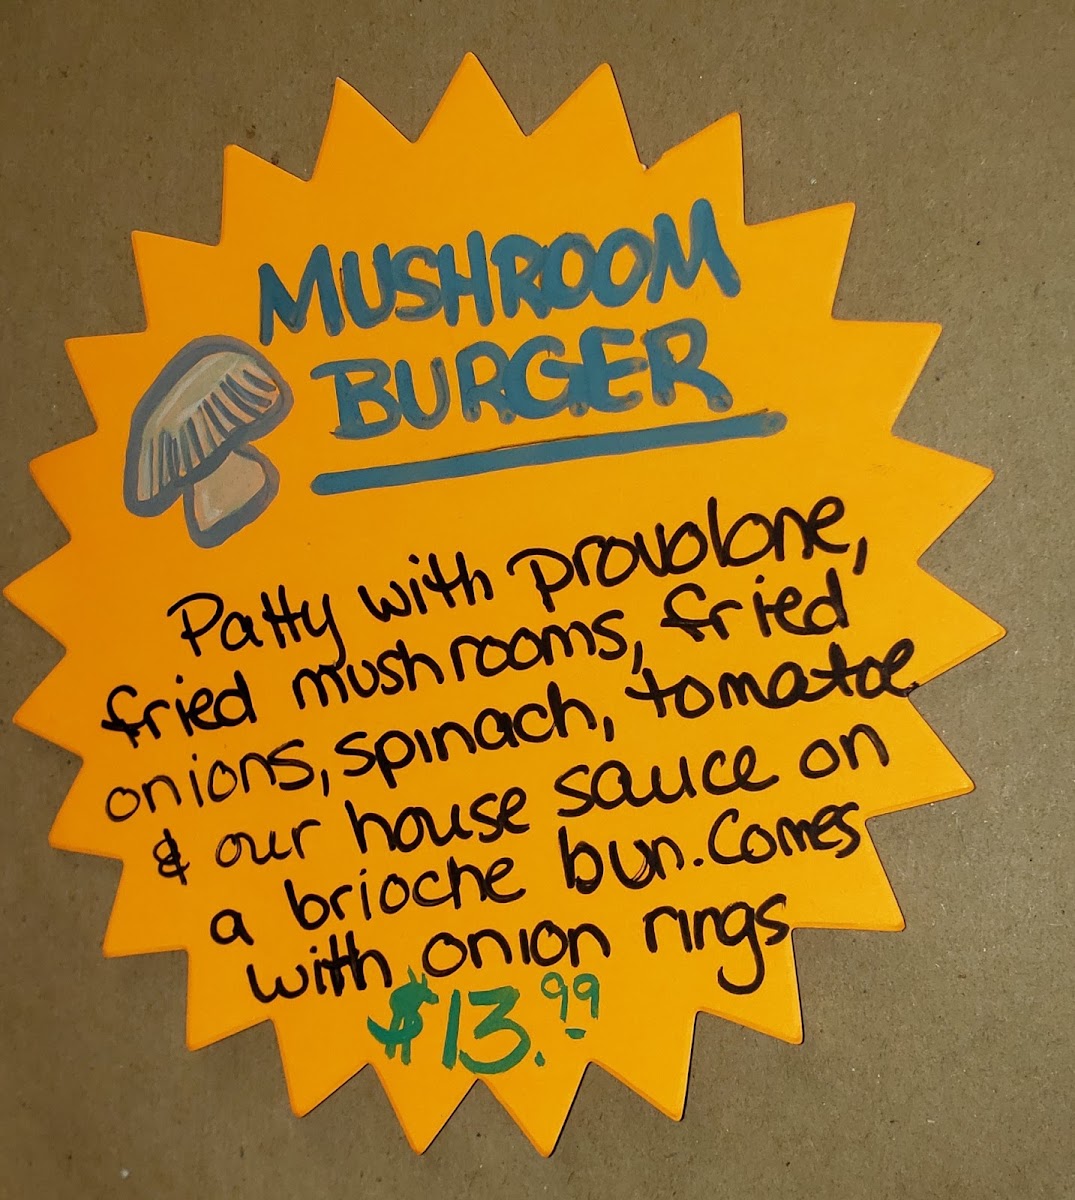 MUSHROOM
BURGER
Patty with provolone,
fried mushrooms, fried
onions, spinach, tomatoe
& our house sauce on
a brioche bun. Comes
with onion rings
$13.99